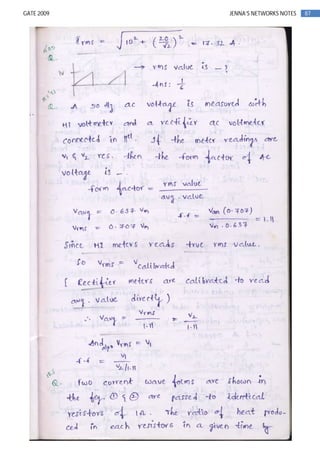 GATE 2009 JENNA'S NETWORKS NOTES 87
Irms = √10² + (20/√2)² = 17.32 A.
Q.
→ rms value is - ?
Ans:
Q. A 50 Hz ac voltage is measured with
MI voltmeter and a rectifier ac voltmeter
connected in ||el. If the meter readings are
V₁ & V₂ res. then the form factor of Ac
voltage is _
form factor = rms value / avg. value
Vavg = 0.637 Vm
Vrms = 0.707 Vm
f.f = Vm (0.707) / Vm . 0.637 = 1.11
Since MI meters reads true rms value.
So Vrms = Vcalibrated
[ Rectifier meters are calibrated to read
avg. value directly. )
∴ Vavg = Vrms / 1.11 = V₂ / 1.11
And Vrms = V₁
f.f = V₁ / V₂/1.11
Q. Two current wave forms are shown in
the fig. ① & ② are passed to identical
resistors of 1Ω. The ratio of heat produ-
ced in each resistors in a given time by